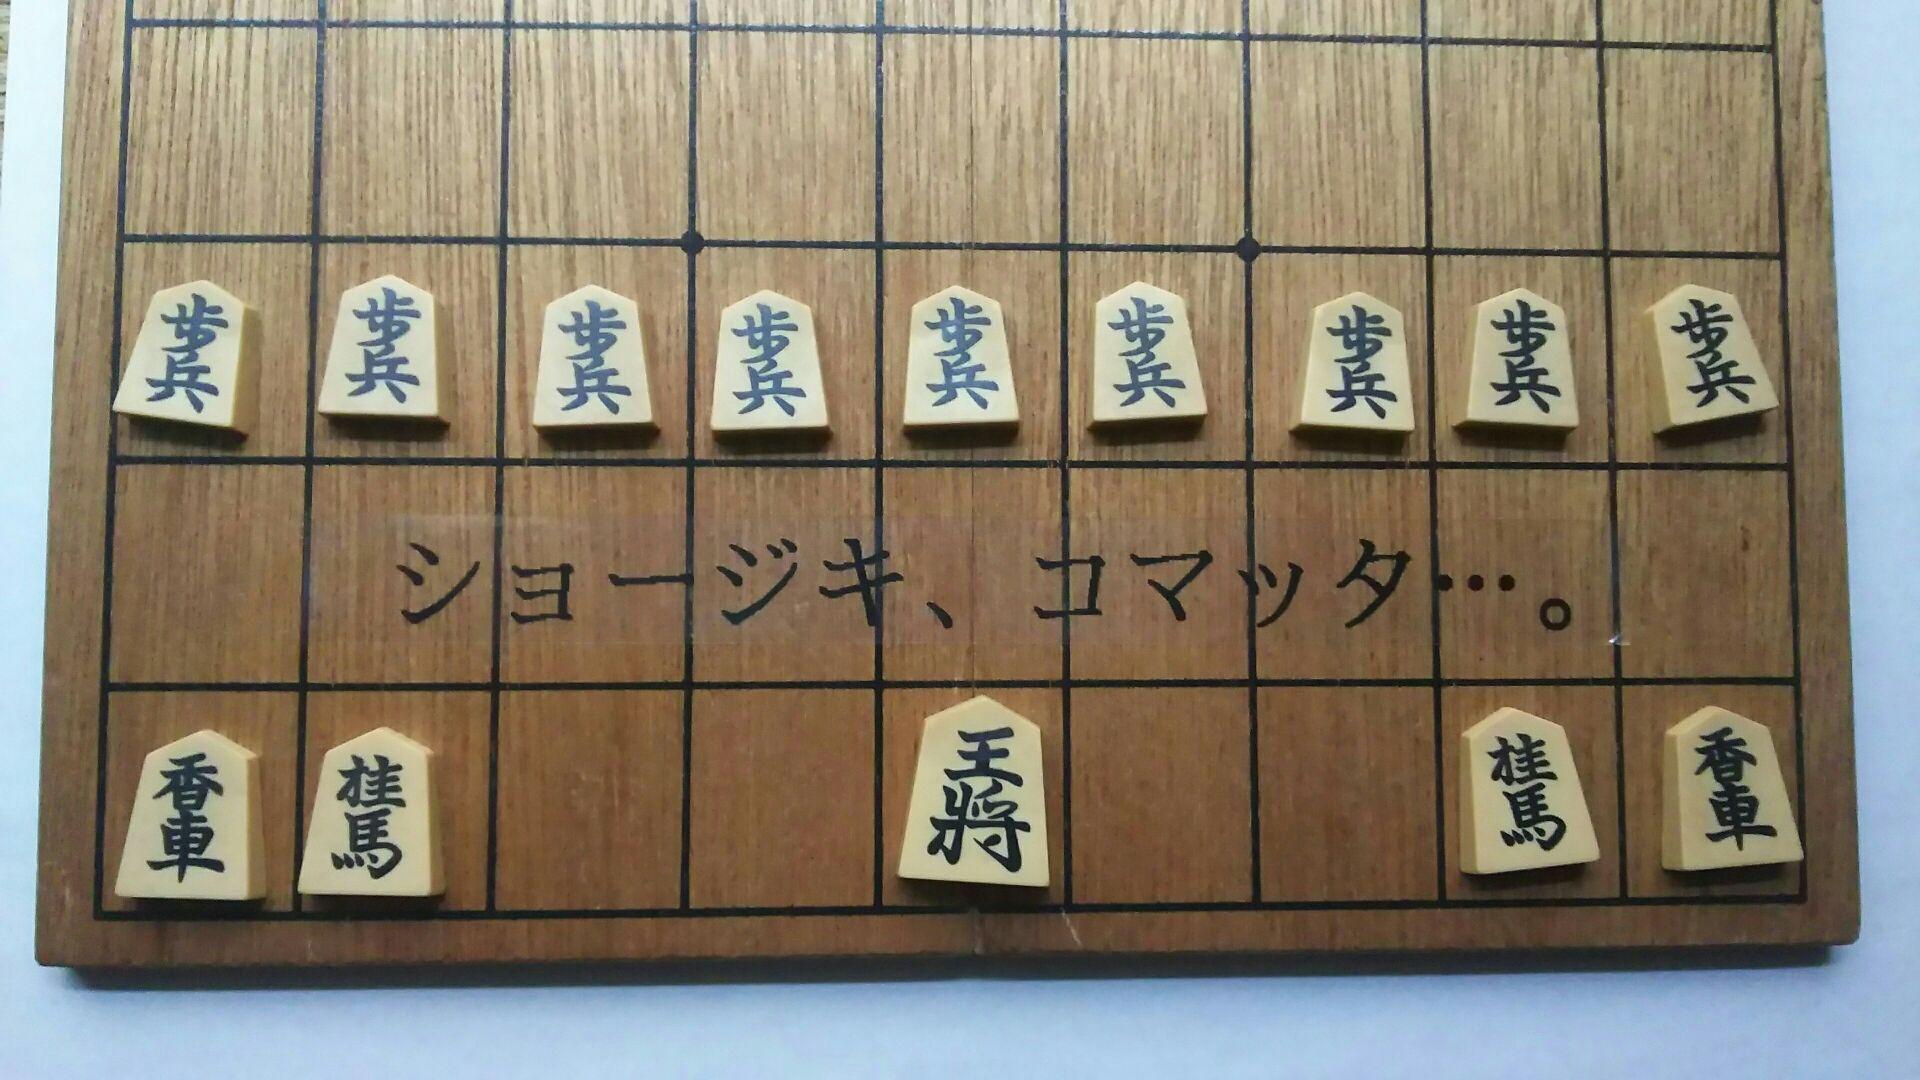 歩兵 歩兵 歩兵 歩兵 歩兵 歩兵 歩兵 歩兵 歩兵
ショージキ、コマッタ…。
香車 桂馬 王将 桂馬 香車